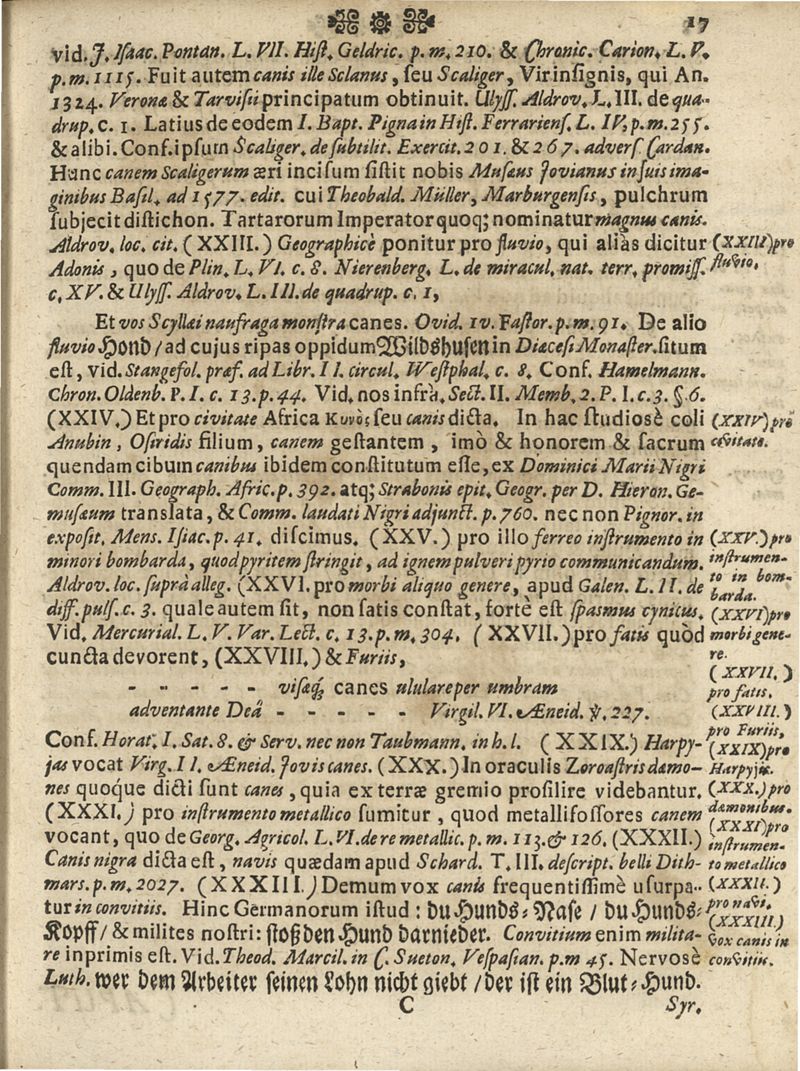 17
vid. J. Isaac. Pontan. L. VII. Hist. Geldric. p. m. 210. & Chronic. Carion. L. V.
p. m. 1115. Fuit autem canis ille Sclanus, seu Scaliger, Vir insignis, qui An.
1324. Veronæ & Tarvisii principatum obtinuit. Ulyss. Aldrov. L. III. de qua-
drup. c. 1. Latius de eodem I. Bapt. Pigna in Hist. Ferrariens. L. IV. p. m. 255.
& alibi. Conf. ipsum Scaliger. de subtilit. Exercit. 201. & 267. advers. Cardan.
Hunc canem Scaligerum æri incisum sistit nobis Musæus Jovianus in suis ima-
ginibus Basil. ad 1577. edit. cui Theobald. Müller, Marburgensis, pulchrum
subjecit distichon. Tartarorum Imperator quoq; nominatur magnus canis.
Aldrov. loc. cit. (XXIII.) Geographicè ponitur pro fluvio, qui aliàs dicitur
Adonis, quo de Plin. L. VI. c. 8. Nierenberg. L. de miracul. nat. terr. promiss.
c. XV. & Ulyss. Aldrov. L. III. de quadrup. c. 1,
(XXIII) pro
fluvio.
Et vos Scyllæi naufraga monstra canes. Ovid. IV. Fastor. p. m. 91. De alio
fluvio Hond / ad cujus ripas oppidum Wildshusen in Diæcesi Monaster. situm
est, vid. Stangefol. præf. ad Libr. II. circul. Westphal. c. 8. Conf. Hamelmann.
Chron. Oldenb. P. I. c. 13. p. 44. Vid. nos infrà. Sect. II. Memb. 2. P. I. c. 3. §. 6.
(XXIV.) Et pro civitate Africa Κυνὸς seu canis dicta. In hac studiosè coli
Anubin, Osiridis filium, canem gestantem, imò & honorem & sacrum
quendam cibum canibus ibidem constitutum esse, ex Dominici Marii Nigri
Comm. III. Geograph. Afric. p. 392. atq; Strabonis epit. Geogr. per D. Hieron. Ge-
musæum translata, & Comm. laudati Nigri adjunct. p. 760. nec non Pignor. in
exposit. Mens. Isiac. p. 41. discimus. (XXV.) pro illo ferreo instrumento in
minori bombarda, quod pyritem stringit, ad ignem pulveri pyrio communicandum.
Aldrov. loc. suprà alleg. (XXVI. pro morbi aliquo genere, apud Galen. L. II. de
diff. puls. c. 3. quale autem sit, non satis constat, fortè est spasmus cynicus.
Vid. Mercurial. L. V. Var. Lect. c. 13. p. m. 304. (XXVII.) pro fatis quòd
cuncta devorent, (XXVIII.) & Furiis,
(XXIV) pro
civitate.
(XXV.) pro
instrumen-
to in bom-
barda.
(XXVI) pro
morbi gene-
re.
(XXVII.)
pro fatis.
- - - - - visæq́; canes ululare per umbram
adventante Deâ - - - - - Virgil. VI. Æneid. v. 227.
Conf. Horat. I. Sat. 8. & Serv. nec non Taubmann. in h. l. (XXIX.) Harpy-
jas vocat Virg. II. Æneid. Jovis canes. (XXX.) In oraculis Zoroastris dæmo-
nes quoque dicti sunt canes, quia ex terræ gremio prosilire videbantur.
(XXXI.) pro instrumento metallico sumitur, quod metallifossores canem
vocant, quo de Georg. Agricol. L. VI. de re metallic. p. m. 113. & 126. (XXXII.)
Canis nigra dicta est, navis quædam apud Schard. T. III. descript. belli Dith-
mars. p. m. 2027. (XXXIII.) Demum vox canis frequentissimè usurpa-
tur in convitiis. Hinc Germanorum istud: du Hunds-Nase / du Hunds-
Kopff / & milites nostri: stoß den Hund darnieder. Convitium enim milita-
re inprimis est. Vid. Theod. Marcil. in C. Sueton. Vespasian. p. m 45. Nervosè
Luth. wer dem Arbeiter seinen Lohn nicht giebt / der ist ein Blut-Hund.
(XXVIII.)
pro Furiis,
(XXIX) pro
Harpyjis.
(XXX.) pro
dæmonibus.
(XXXI) pro
instrumen-
to metallico
(XXXII.)
pro navi.
(XXXIII.)
vox canis in
convitiis.
C
Syr.